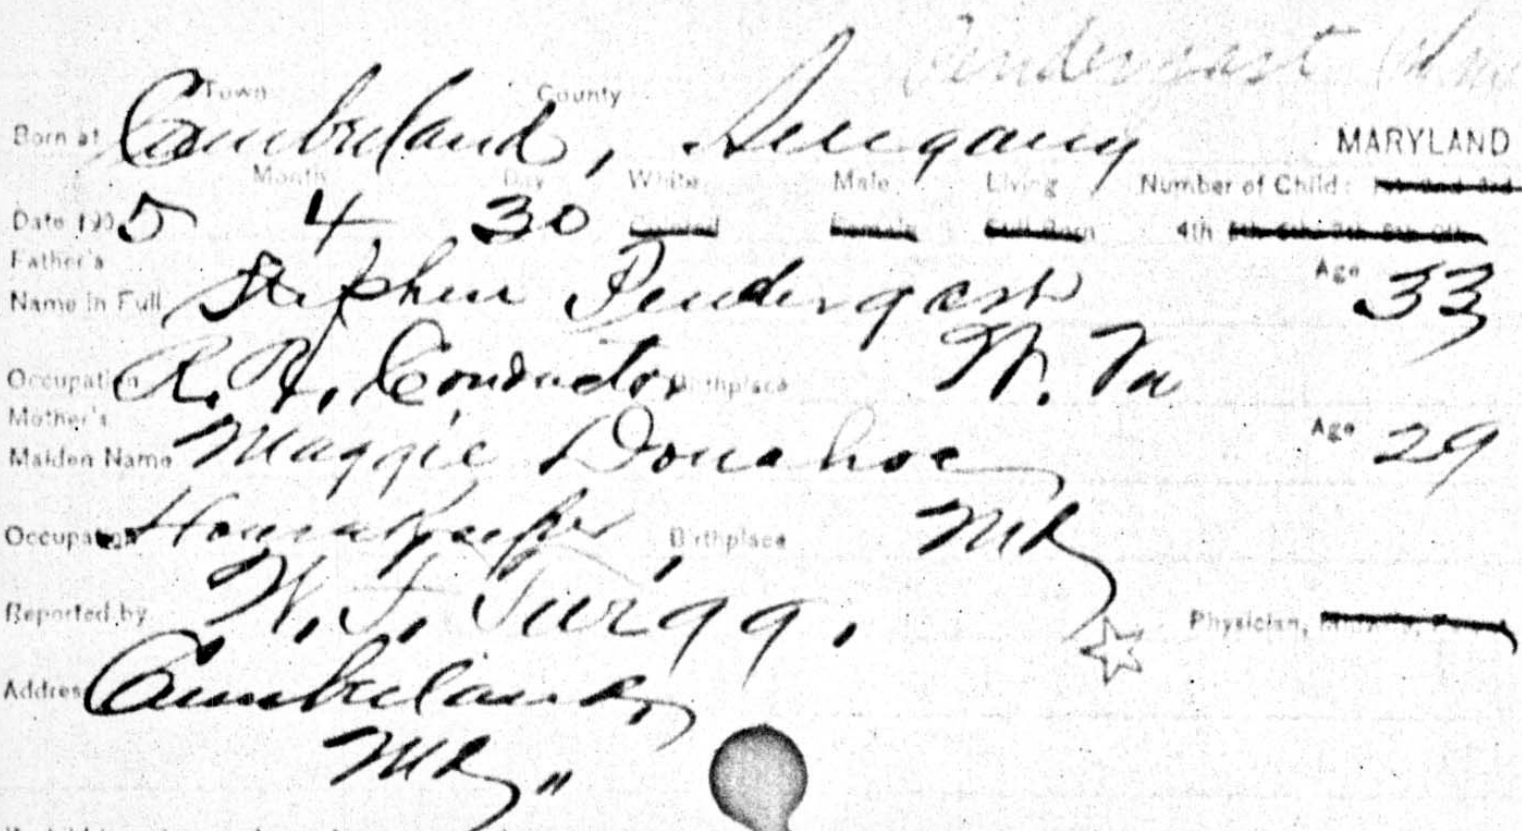 Pendergast
Town County
Born at Cumberland, Allegany MARYLAND
Month Day White Male Living Number of Child: 1st 2nd 3rd
Date 1905 4 30 Colored Female Still Born 4th 5th 6th 7th 8th 9th
Father's
Name in Full Stephen Pendergast Age 33
Occupation R. R. Conductor Birthplace W. Va
Mother's
Maiden Name Maggie Donahoe Age 29
Occupation Housekeeper Birthplace Md
Reported by W. F. Twigg. Physician,
Address Cumberland,
Md "